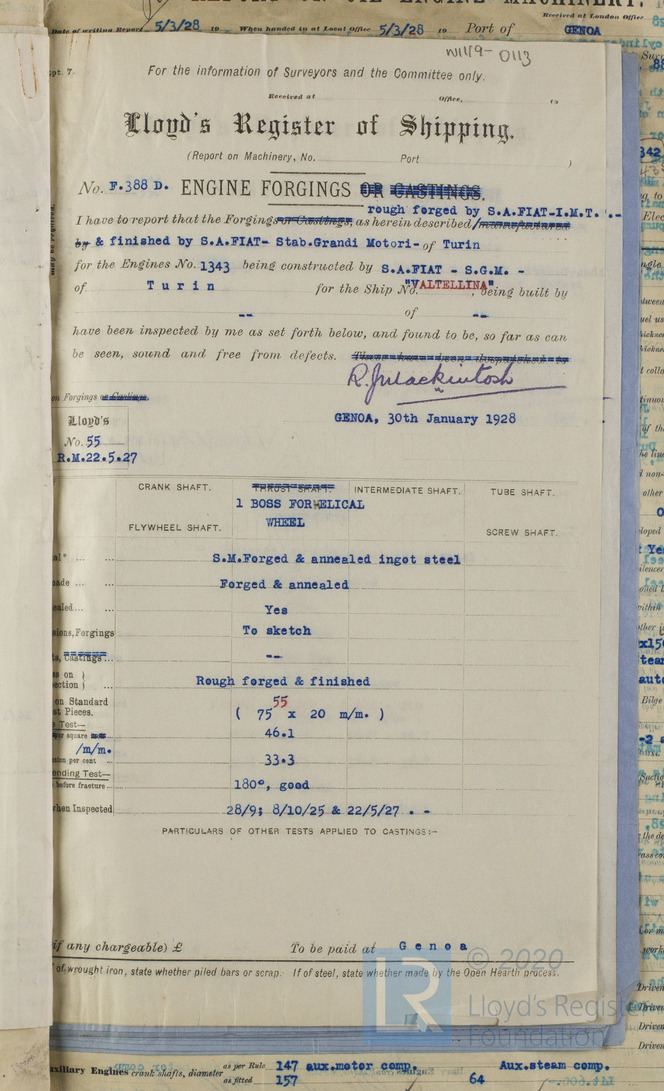 Received at London Office
Date of writing Report 5/3/28 19 When handed in at Local Office 5/3/28 19 Port of GENOA
W1149-0113
pt. 7.
For the information of Surveyors and the Committee only.
Received at Office, 19
Lloyd's Register of Shipping.
(Report on Machinery, No. Port )
No. F.388 D. ENGINE FORGINGS OR CASTINGS.
rough forged by S.A.FIAT-I.M.T. .-
I have to report that the Forgings or Castings, as herein described/manufactured
by & finished by S.A.FIAT- Stab.Grandi Motori- of Turin
for the Engines No. 1343 being constructed by S.A.FIAT - S.G.M. -
of Turin for the Ship No. "VALTELLINA", being built by
-- of --
have been inspected by me as set forth below, and found to be, so far as can
be seen, sound and free from defects.
R. J. Mackintosh
on Forgings or Castings.
GENOA, 30th January 1928
Lloyd's
No. 55
R.M.22.5.27
CRANK SHAFT. THRUST SHAFT. INTERMEDIATE SHAFT. TUBE SHAFT.
1 BOSS FOR HELICAL
WHEEL
FLYWHEEL SHAFT. SCREW SHAFT.
al* ... ... S.M.Forged & annealed ingot steel
ade ... ... Forged & annealed
ealed... ... Yes
sions, Forgings To sketch
ts, Castings ... --
s on }
ection } ... Rough forged & finished
on Standard
t Pieces. ( 75 55 x 20 m/m. )
Test—
per square 46.1
/m/m.
sion per cent ... 33.3
ending Test—
before fracture... 180°, good
hen Inspected 28/9; 8/10/25 & 22/5/27 . -
PARTICULARS OF OTHER TESTS APPLIED TO CASTINGS:-
if any chargeable) £ To be paid at Genoa
of wrought iron, state whether piled bars or scrap. If of steel, state whether made by the Open Hearth process.
© 2020
LR
Lloyd's Register
Foundation
17
uxiliary Engines crank shafts, diameter as per Rule 147 aux.motor comp. Aux.steam comp.
as fitted 157 64